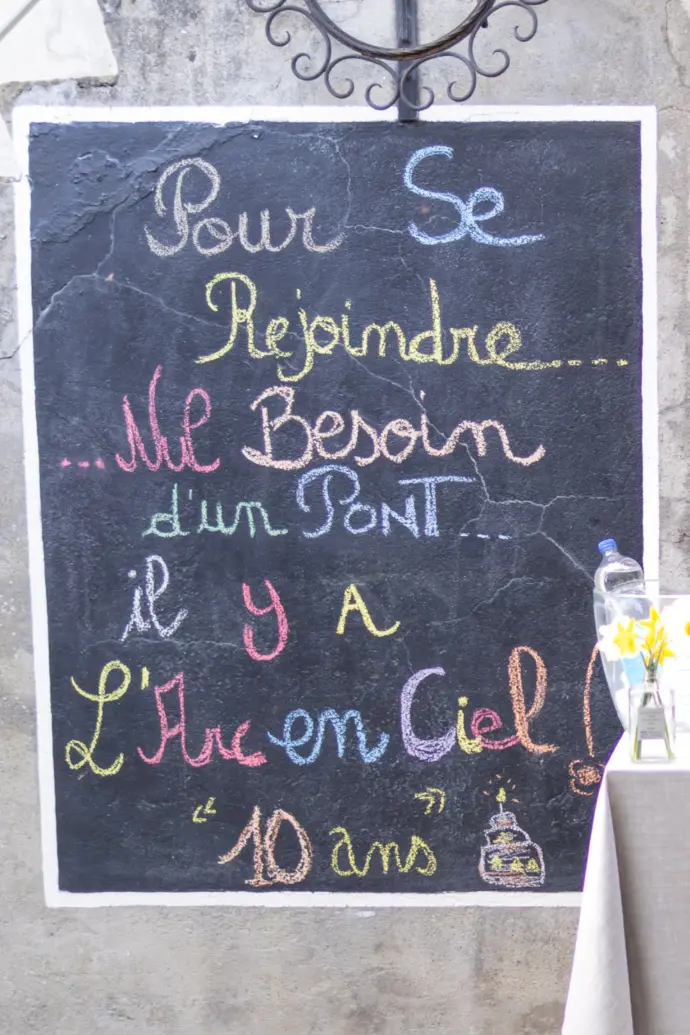 Pour Se
Rejoindre....
...Nul Besoin
d'un PONT...
il y A
L'Arc en Ciel !
« "10 ans" »